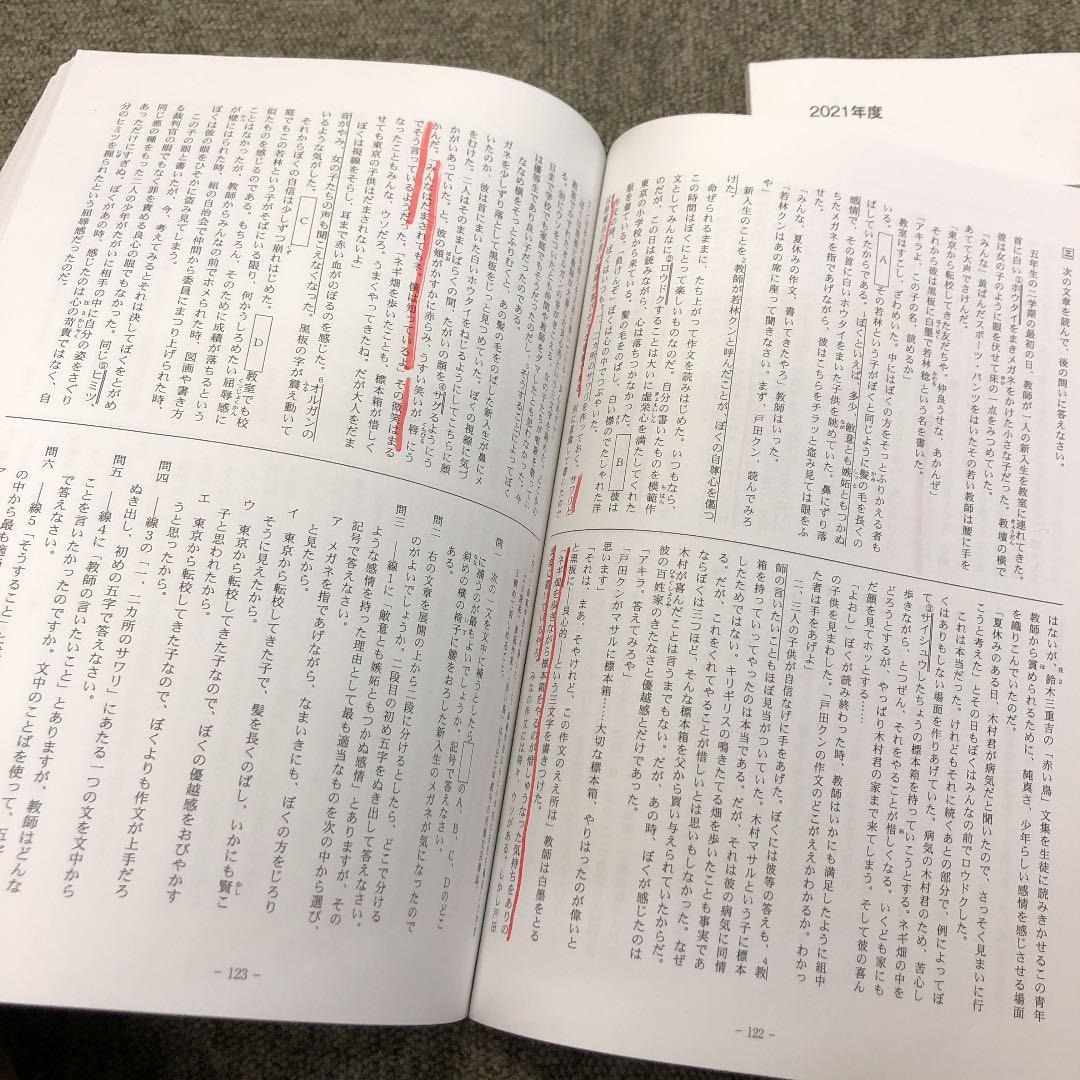 2021年度
三 次の文章を読んで、後の問いに答えなさい。
五年生の二学期の最初の日、教師が一人の新入生を教室に連れてきた。
首に白い①ホウタイをまきメガネをかけた小さな子だった。教壇の横で
彼は女の子のように眼を伏せて床の一点をみつめていた。
「みんな」黄ばんだスポーツ・パンツをはいたその若い教師は腰に手を
あてて大声でさけんだ。
「東京から転校してきた友だちや。仲良うせな、あかんぜ」
それから彼は黒板に白墨で若林稔という名を書いた。
「アキラよ、この子の名、読めるか」
教室はすこし、ざわめいた。中にはぼくの方をそっとふりかえる者も
いる。 A その若林という子がぼくと同じように髪の毛を長くの
ばしていたからである。ぼくといえば、多少、1敵意とも嫉妬ともつかぬ
感情で、その首に白いホウタイをまいた子供を眺めていた。鼻にずり落
ちたメガネを指であげながら、彼はこちらをチラッと盗み見ては眼をふ
せた。
「みんな、夏休みの作文、書いてきたやろ」教師はいった。
「若林クンはあの席に座って聞きなさい。まず、戸田クン、読んでみろ
や」
新入生のことを2教師が若林クンと呼んだことが、ぼくの自尊心を傷つ
けた。
命ぜられるままに、たち上って作文を読みはじめた。いつもなら、
この時間はぼくにとって楽しいものなのだ。自分の書いたものを模範作
文としてみんなに②ロウドクすることは大いに虚栄心を満たしてくれた
のだが、この日は読みながら、心は落ちつかなかった。
東京の小学校から来ている。髪の毛をのばし、白い襟のでたしゃれた洋
服を着ている。(負けんぞ)とぼくは心の中でつぶやいた。
はないが、鈴木三重吉の「赤い鳥」文集を生徒に読みきかせるこの青年
教師から賞められるために、純真さ、少年らしい感情を感じさせる場面
を織りこんでいたのだ。
「夏休みのある日、木村君が病気だと聞いたので、さっそく見まいに行
こうと考えた」とその日もぼくはみんなの前でロウドクした。
これは本当だった。けれどもそれに続くあとの部分で、例によってぼ
くはありもしない場面を作りあげていた。病気の木村君のため、苦心し
て③サイシュウしたちょうの標本箱を持っていこうとする。ネギ畑の中を
歩きながら、とつぜん、それをやることが惜しくなる。いくども家にも
どろうとするが、やっぱり木村君の家まで来てしまう。そして彼の喜ん
だ顔を見てホッとする……
「よおし」ぼくが読み終わった時、教師はいかにも満足したように組中
の子供を見まわした。「戸田クンの作文のどこがええかわかるか。わかっ
た者は手をあげよ」
二、三人の子供が自信なげに手をあげた。ぼくには彼等の答えも、4教
師の言いたいこともほぼ見当がついていた。木村マサルという子に標本
箱を持っていってやったのは本当である。だが、それは彼の病気に同情
したためではない。キリギリスの鳴きたてる畑を歩いたことも事実であ
る。だが、これをくれてやることが惜しいとは思いもしなかった。なぜ
ならぼくは三つほど、そんな標本箱を父から買い与えられていたからだ。
木村が喜んだことは言うまでもない。だが、あの時、ぼくが感じたのは
彼の百姓家のきたなさと優越感とだけであった。
「アキラ。答えてみろや」
「戸田クンがマサルに標本箱……大切な標本箱、やりはったのが偉いと
思います」
「それは、まあ、そやけれど、この作文のええ所は」教師は白墨をとる
と黒板に――良心的――という三文字を書きつけた。
「ネギ畑を歩きながら標本箱をやるのが惜しゅうなった気持ちをありの
－122－
ななめ横をそっとふりむくと、あの髪の毛をのばした新入生が鼻にメ
ガネを少しずり落として黒板をじっと見つめていた。ぼくの視線に気づ
いたのか、彼は首にまいた白いホウタイをねじるようにしてこちらに顔
をむけた。二人はそのまましばらくの間、たがいの顔を④サグるようにう
かがいあっていた。と、彼の頬がかすかに赤らみ、うすい笑いが唇にう
かんだ。(みんなはだまされてもね、僕は知っているよ)その微笑はまる
でそう言っているようだった。「ネギ畑を歩いたことも、標本箱が惜しく
なったこともみんな、ウソだろ。うまくやってきたね。だが大人をだま
せても東京の子供はだまされないよ」
ぼくは視線をそらし、耳まで赤い血がのぼるのを感じた。6オルガンの
音がやみ、女の子たちの声も聞こえなくなった。黒板の字が震え動いて
いるような気がした。
それからぼくの自信は少しずつ崩れはじめた。 D 教室でも校
庭でもこの若林という子がそばにいる限り、何かうしろめたい屈辱感に
似たものを感じるのである。もちろん、そのために成績が落ちるという
ことはなかったが、教師からみんなの前でホメられた時、図画や書き方
が壁にはられた時、組の自治会で仲間から委員にまつり上げられた時、
ぼくは彼の眼をひそかに盗み見てしまう。
この子の眼と書いたが、今、考えてみるとそれは決してぼくをとがめ
る裁判官の眼でもなく罪を責める良心の眼でもなかった。同じ⑤ヒミツ、
同じ悪の種をもった二人の少年がたがいに相手の中に自分の姿をさぐり
あっただけにすぎぬ。ぼくがあの時、感じたのは心の苛責ではなく、自
分のヒミツを握られたという屈辱感だったのだ。
C
問一 次の一文を文中に補うとしたら、 のA、B、C、Dのどこ
に補うのが最もよいでしょうか。記号で答えなさい。
斜めの横の椅子に腰をおろした新入生のメガネが気になったので
ある。
問二 右の文章を展開の上から二段に分けるとしたら、どこで分ける
のがよいでしょうか。二段目の初め五字をぬき出して答えなさい。
問三 ――線1に「敵意とも嫉妬ともつかぬ感情」とありますが、その
ような感情を持った理由として最も適当なものを次の中から選び、
記号で答えなさい。
ア メガネを指であげながら、なまいきにも、ぼくの方をじろり
と見たから。
イ 東京から転校してきた子で、髪を長くのばし、いかにも賢こ
そうに見えたから。
ウ 東京から転校してきた子なので、ぼくの優越感をおびやかす
子と思われたから。
エ 東京から転校してきた子なので、ぼくよりも作文が上手だろ
うと思ったから。
問四 ――線3の「一、二カ所のサワリ」にあたる一つの文を文中から
ぬき出し、初めの五字で答えなさい。
問五 ――線4に「教師の言いたいこと」とありますが、教師はどんな
ことを言いたかったのですか。文中のことばを使って、
で答えなさい。
問六 ――線5「そうすること」
の中から最も
－123－